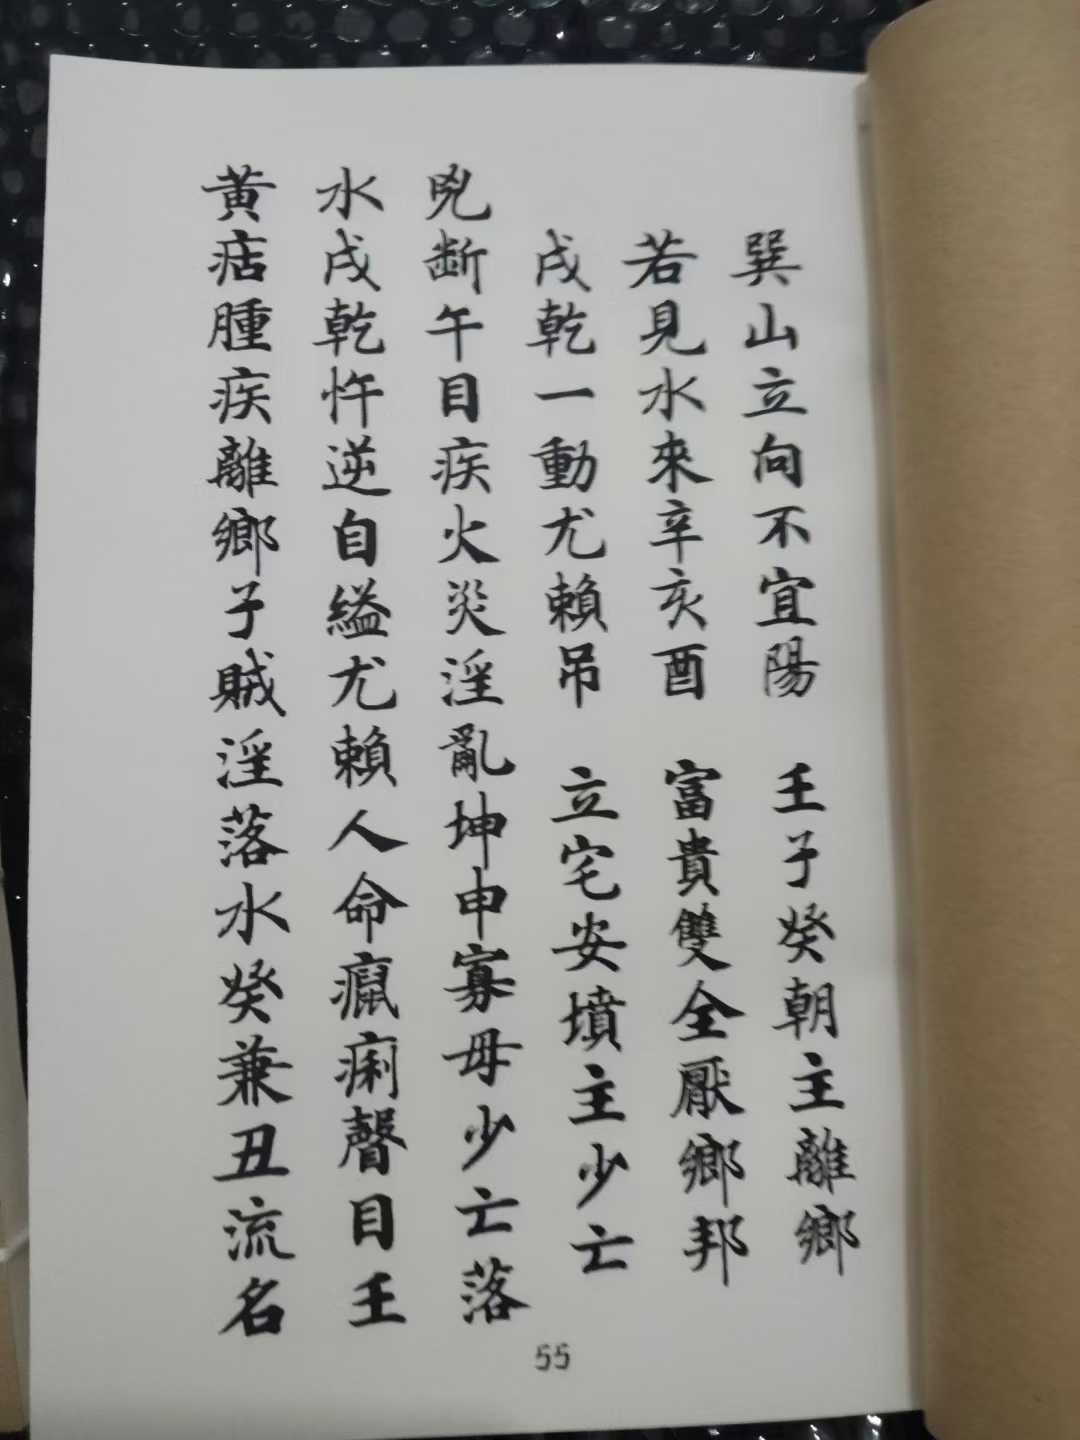 巽山立向不宜陽　壬子癸朝主離鄉
若見水來辛亥酉　富貴雙全厭鄉邦
戌乾一動尤賴吊　立宅安墳主少亡
兇斷午目疾火災淫亂坤申寡母少亡落
水戌乾忤逆自縊尤賴人命癲痢瞽目壬
黄痁腫疾離鄉子賊淫落水癸兼丑流名
55